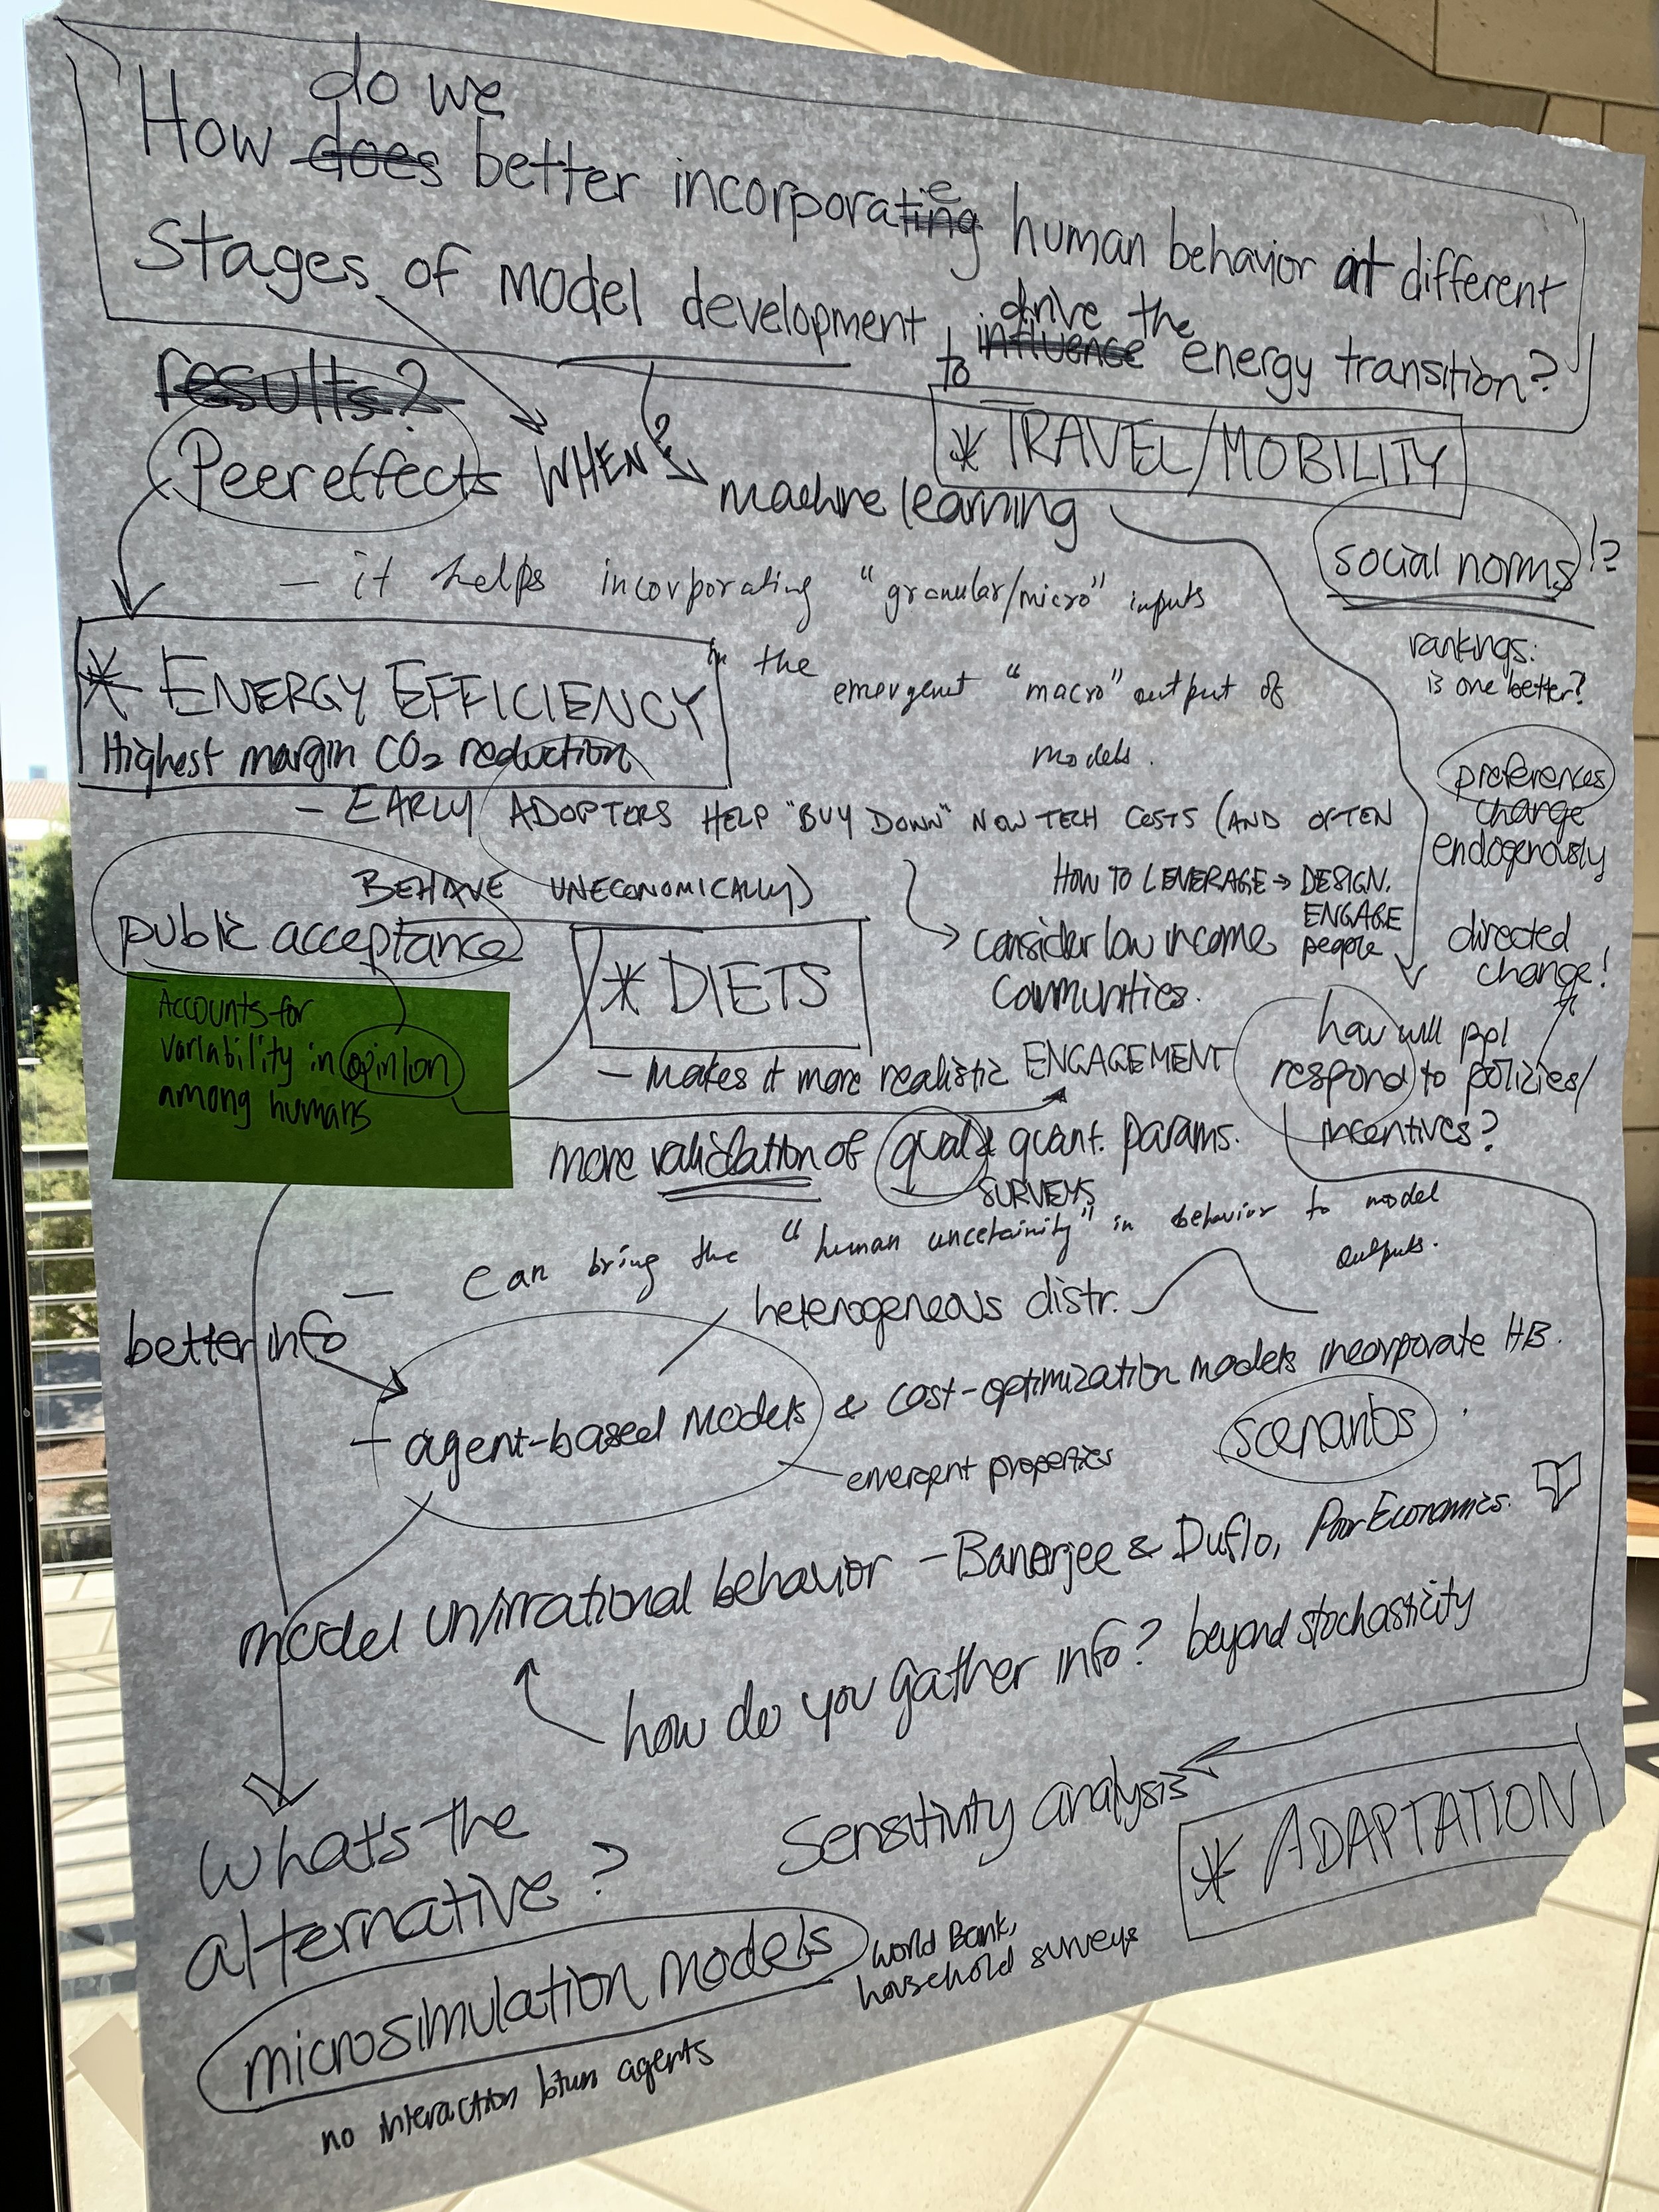 do we
How does better incorporatinge human behavior at different
stages of model development to influence drive the energy transition?
results?
Peer effects
WHEN?
* TRAVEL/MOBILITY
machine learning
social norms!?
— it helps incorporating "granular/micro" inputs
in the emergent "macro" output of
models.
rankings:
is one better?
* ENERGY EFFICIENCY
Highest margin CO2 reduction
preferences
change
endogenously
— EARLY ADOPTERS HELP "BUY DOWN" NEW TECH COSTS (AND OFTEN
BEHAVE UNECONOMICALLY)
HOW TO LEVERAGE → DESIGN.
ENGAGE
people
public acceptance
consider low income
communities.
directed
change!
* DIETS
Accounts for
variability in opinion
among humans
— makes it more realistic
ENGAGEMENT
how will ppl
respond to policies/
incentives?
more validation of qual & quant. params.
SURVEYS
— can bring the "human uncertainity" in behavior to model
outputs.
heterogeneous distr.
better info
— agent-based models & cost-optimization models incorporate HB.
scenarios
emergent properties
model un/irrational behavior — Banerjee & Duflo, Poor Economics.
how do you gather info? beyond stochasticity
What's the
alternative?
Sensitivity analysis
* ADAPTATION
microsimulation models
World Bank,
household surveys
no interaction btwn agents